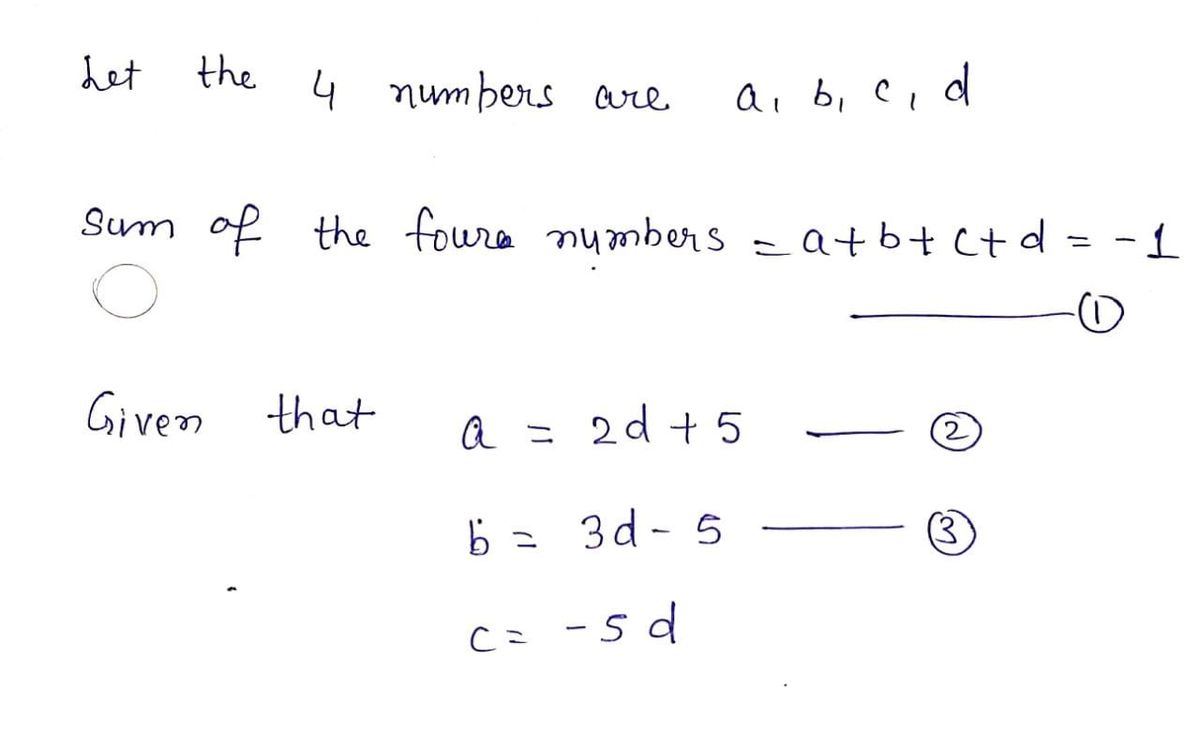 Let the 4 numbers are a, b, c, d
Sum of the foure numbers = a + b + c + d = -1
①
Given that a = 2d + 5 — ②
b = 3d - 5 — ③
c = -5d